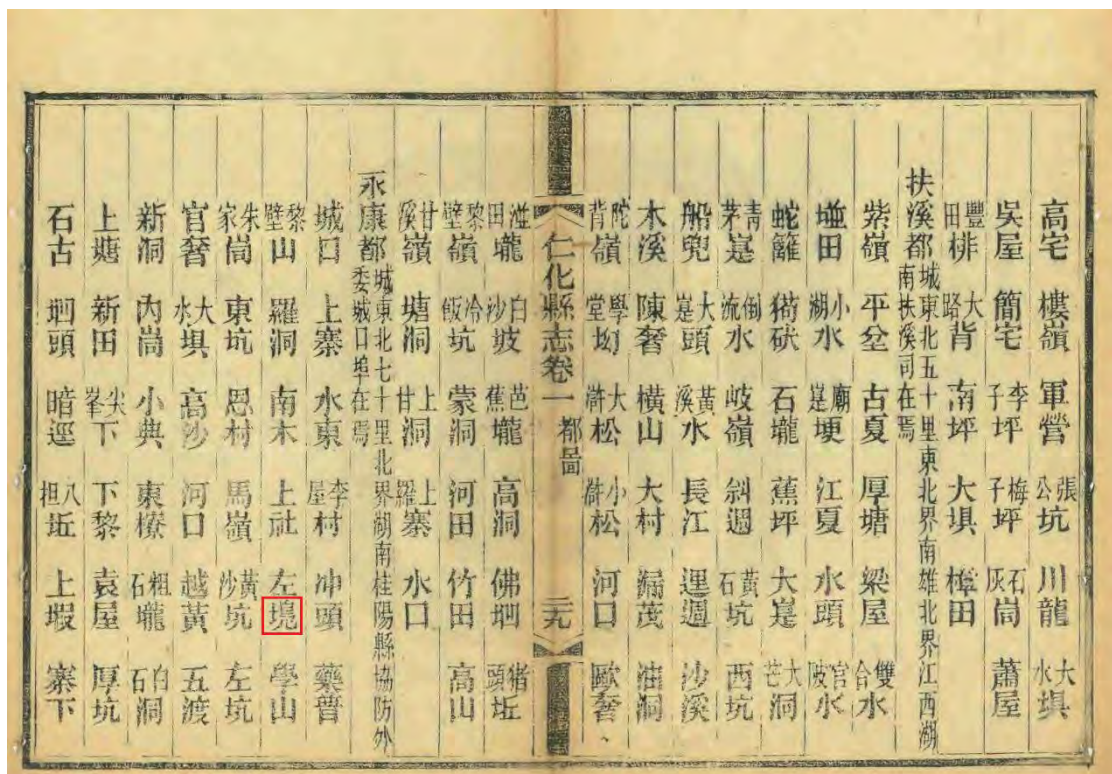 高宅 樓嶺 軍營 張公坑 川龍 大水埧
吳屋 簡宅 李子坪 梅子坪 石灰崗 蕭屋
豐田棑 大路背 南坪 大埧 樟田
扶溪都 城東北五十里東北界南雄北界江西湖南扶溪司在焉
紫嶺 平坌 古夏 厚塘 梁屋 雙合水
田 小湖水 廟崼埂 江夏 水頭 官陂水
蛇籬 石壠 蕉坪 大崼 大芒洞
青茅崼 倒流水 岐嶺 斜週 黃石坑 西坑
船兜 大崼頭 黃溪水 長江 運週 沙溪
木溪 陳奢 橫山 大村 漏茂 油洞
陀背嶺 學堂坳 大滸松 小滸松 河口 歐奢
仁化縣志卷一 都啚 二九
湴田壠 白沙坡 芭蕉壠 高洞 佛坰 猪頭坵
黎壁嶺 冷飯坑 蒙洞 河田 竹田 高山
甘溪嶺 塘洞 上甘洞 上羅寨 水口
永康都 城東北七十里北界湖南桂陽縣協防外委城口埠在焉
城口 上寨 水東 李屋村 冲頭 藥普
黎壁山 羅洞 南木 上社 左 學山
朱家崗 東坑 思村 馬嶺 黃沙坑 左坑
官奢 大水埧 高沙 河口 越黃 五渡
新洞 內崗 小典 東橑 粗石壠 白石洞
上塘 新田 尖峯下 下黎 袁屋 厚坑
石古 坰頭 暗逕 八担坵 上 寨下